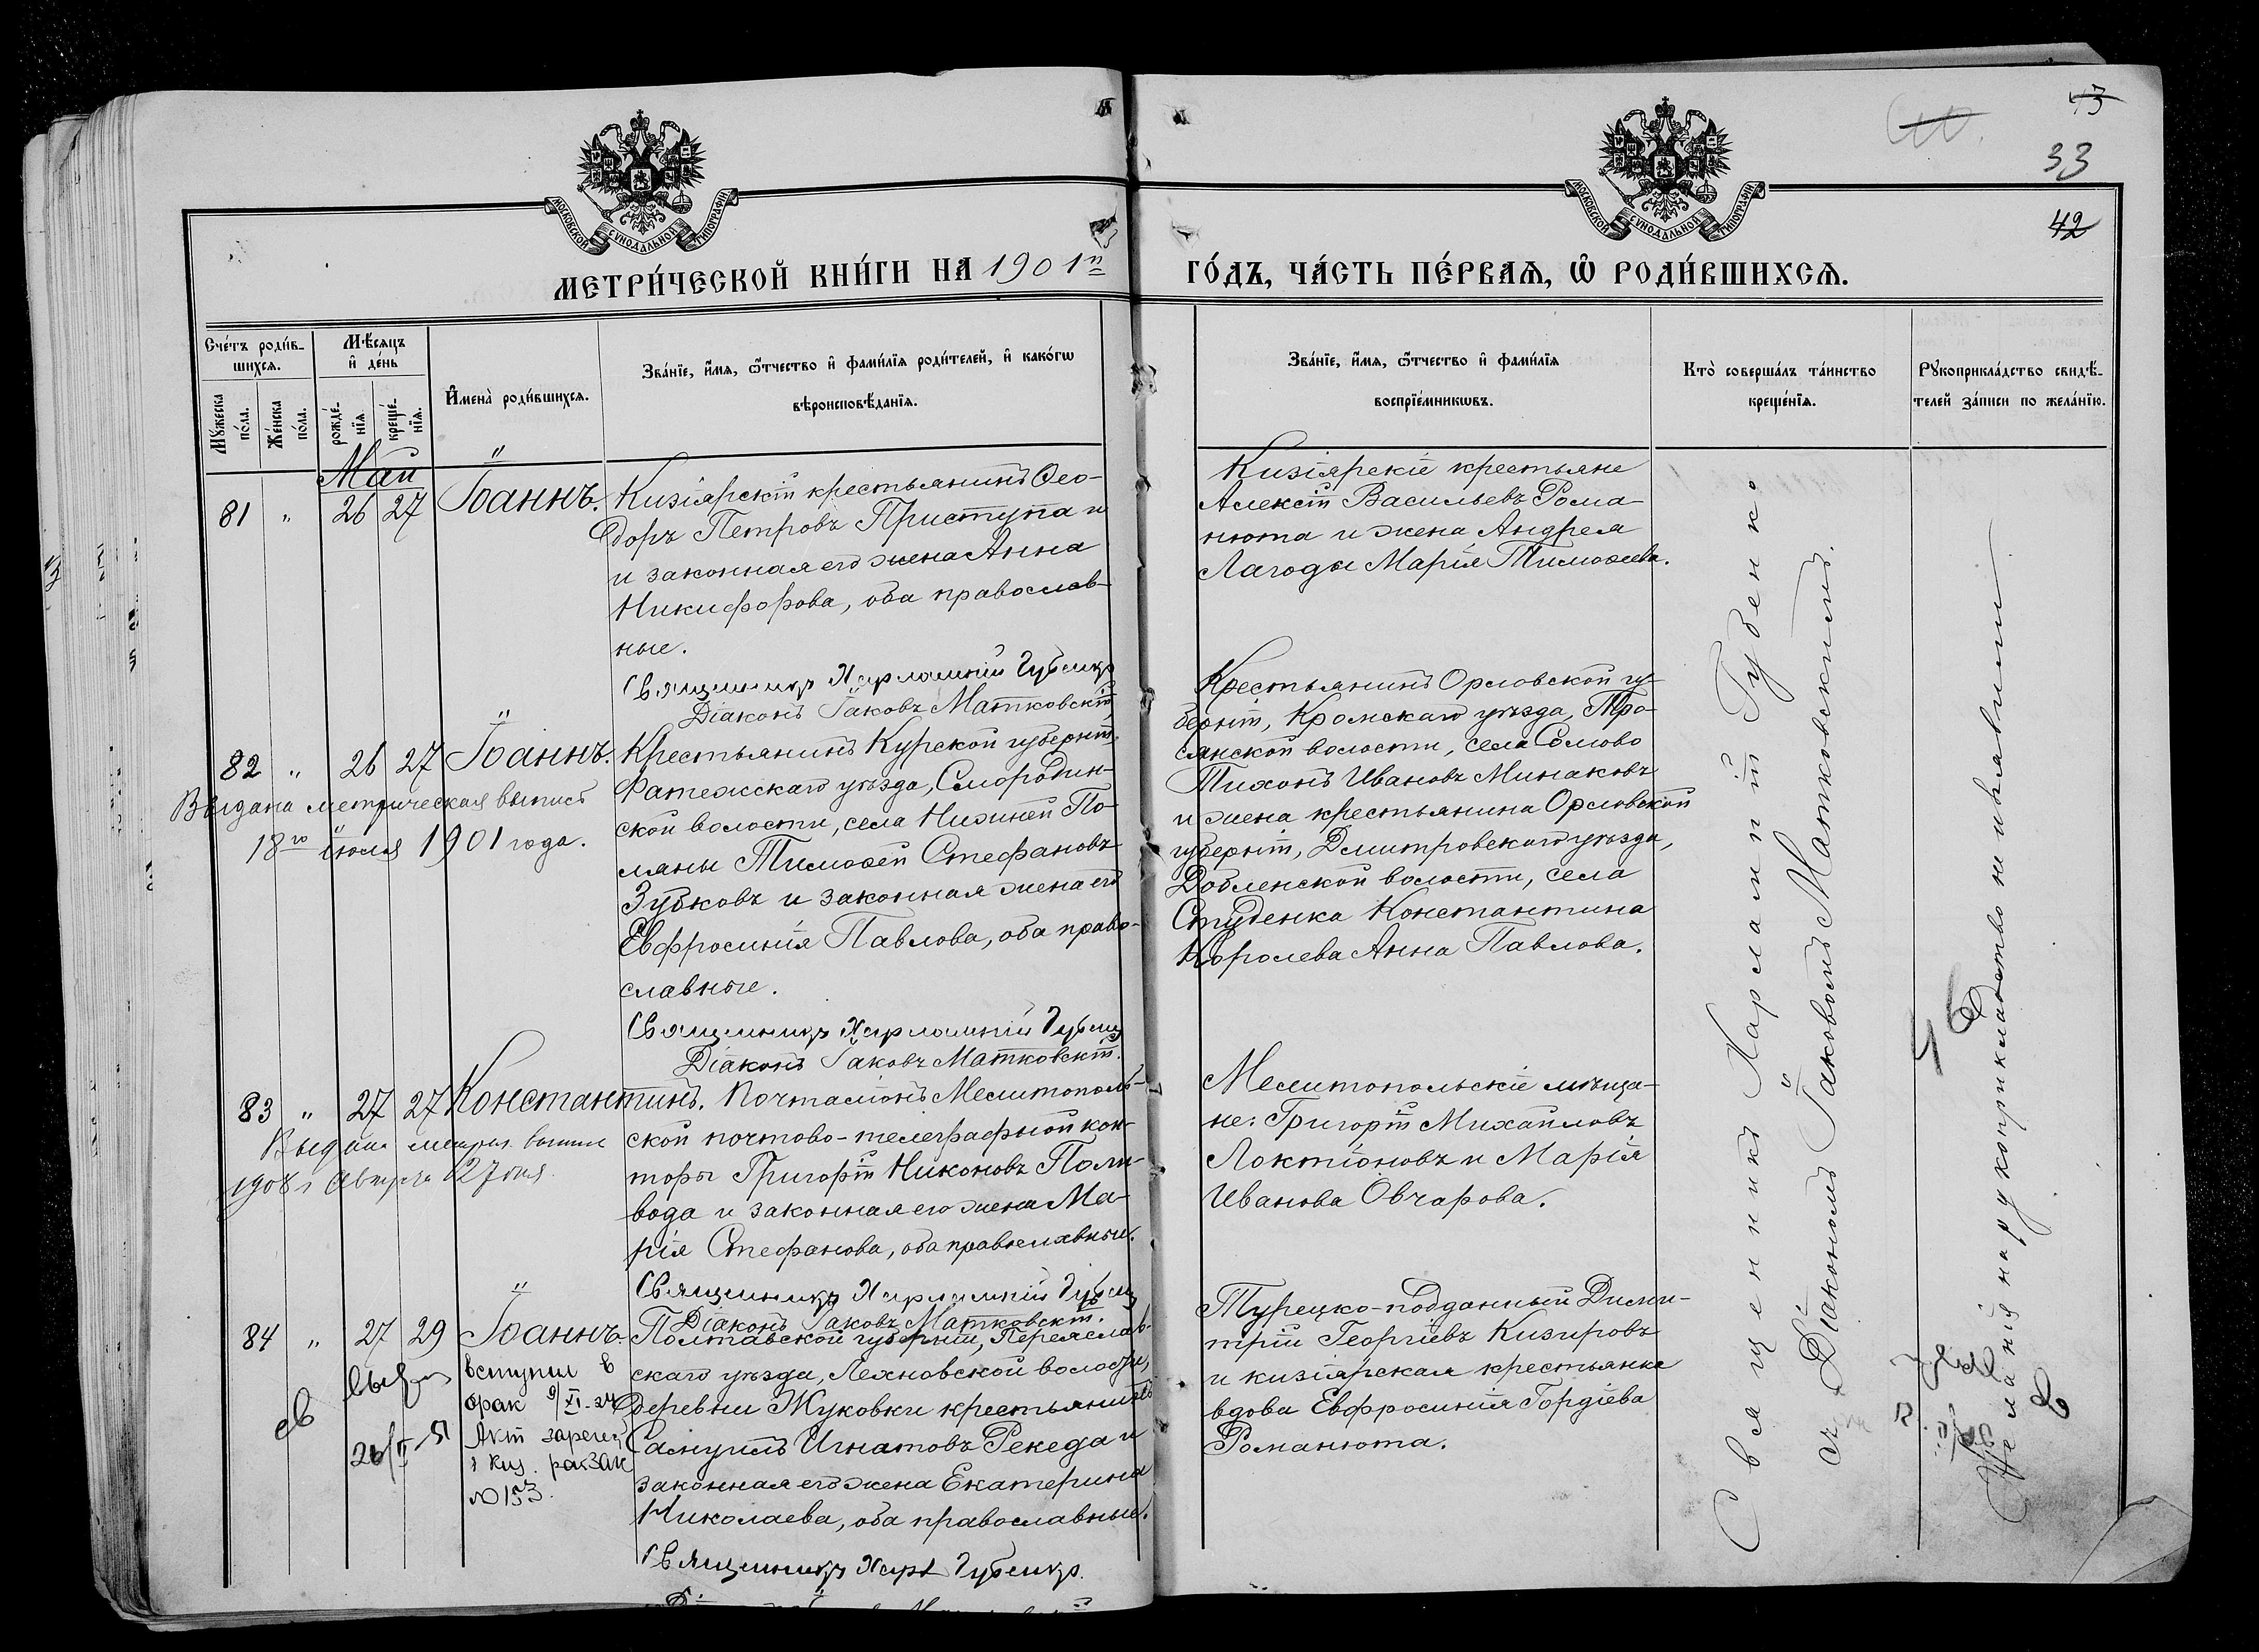 43
33
42
МОСКОВСКОЙ СѴНОДАЛЬНОЙ ТИПОГРАФІИ
МОСКОВСКОЙ СѴНОДАЛЬНОЙ ТИПОГРАФІИ
МЕТРИ́ЧЕСКОЙ КНИ́ГИ НА 1901й ГО́ДЪ, ЧА́СТЬ ПЕ́РВАѦ, Ѡ РОДИ́ВШИХСѦ.
Сче́тъ роди́в-
шихсѧ.
Мꙋ́жеска по́ла.
Же́нска по́ла.
Мѣ́сѧцъ
и҆ де́нь
рожде́-
нїѧ.
креще́-
нїѧ.
И҆мена̀ роди́вшихсѧ.
Зва́нїе, и҆́мѧ, ѻ҆́тчество и҆ фами́лїѧ роди́телей, и҆ како́гѡ
вѣроисповѣ́данїѧ.
Зва́нїе, и҆́мѧ, ѻ҆́тчество и҆ фами́лїѧ
воспрїе́мникѡвъ.
Кто̀ соверша́лъ та́инство
креще́нїѧ.
Рꙋкоприкла́дство свидѣ́-
телей за́писи по жела́нїю.
Май
81 " 26 27 Іоаннъ.
Кизіярскій крестьянинъ Ѳео-
доръ Петровъ Приступа и
и законная его жена Анна
Никифорова, оба православ-
ные.
Священникъ Харлампій Губенко
Діаконъ Іаковъ Матковскій
Кизіярскіе крестьяне
Алексій Васильевъ Рома-
нюта и жена Андрея
Лагоды Марія Тимоѳеева.
82 " 26 27 Іоаннъ.
Выдана метрическая выпись
18го іюля 1901 года.
Крестьянинъ Курской губерніи,
Фатежскаго уѣзда, Смородин-
ской волости, села Нижней По-
ляны Тимоѳей Стефановъ
Зубковъ и законная жена его
Евфросинія Павлова, оба право-
славные.
Священникъ Харлампій Губенко
Діаконъ Іаковъ Матковскій.
Крестьянинъ Орловской гу-
берніи, Кромскаго уѣзда, Тро-
сянской волости, села Сомово
Тихонъ Ивановъ Минаковъ
и жена крестьянина Орловской
губерніи, Дмитровскаго уѣзда,
Добленской волости, села
Студенка Константина
Королева Анна Павлова.
83 " 27 27 Константинъ.
Выдана метрич. выпись
1908 г Августа 27 дня
Почталіонъ Мелитополь-
ской почтово-телеграфной кон-
торы Григорій Никоновъ Поли-
вода и законная его жена Ма-
рія Стефанова, оба православные.
Священникъ Харлампій Губенко
Діаконъ Іаковъ Матковскій.
Мелитопольскіе мѣща-
не: Григорій Михайловъ
Локтіоновъ и Марія
Иванова Овчарова.
84 " 27 29 Іоаннъ.
вступил в
брак 9/XI-24
Акт зарегеш
№ 153.
Полтавской губерніи, Переяслав-
скаго уѣзда, Лехновской волости,
деревни Жуковки крестьянинъ
Самуилъ Игнатовъ Рекеда и
законная его жена Екатерина
Николаева, оба православные.
Священникъ Харл Губенко.
Турецко-подданный Дими-
трій Георгіевъ Кизировъ
и кизіярская крестьянка
вдова Евфросинія Гордіева
Романюта.
Священникъ Харлампій Губенко
съ Діакономъ Іаковомъ Матковскимъ.
Желанія на рукоприкладство не изъявили